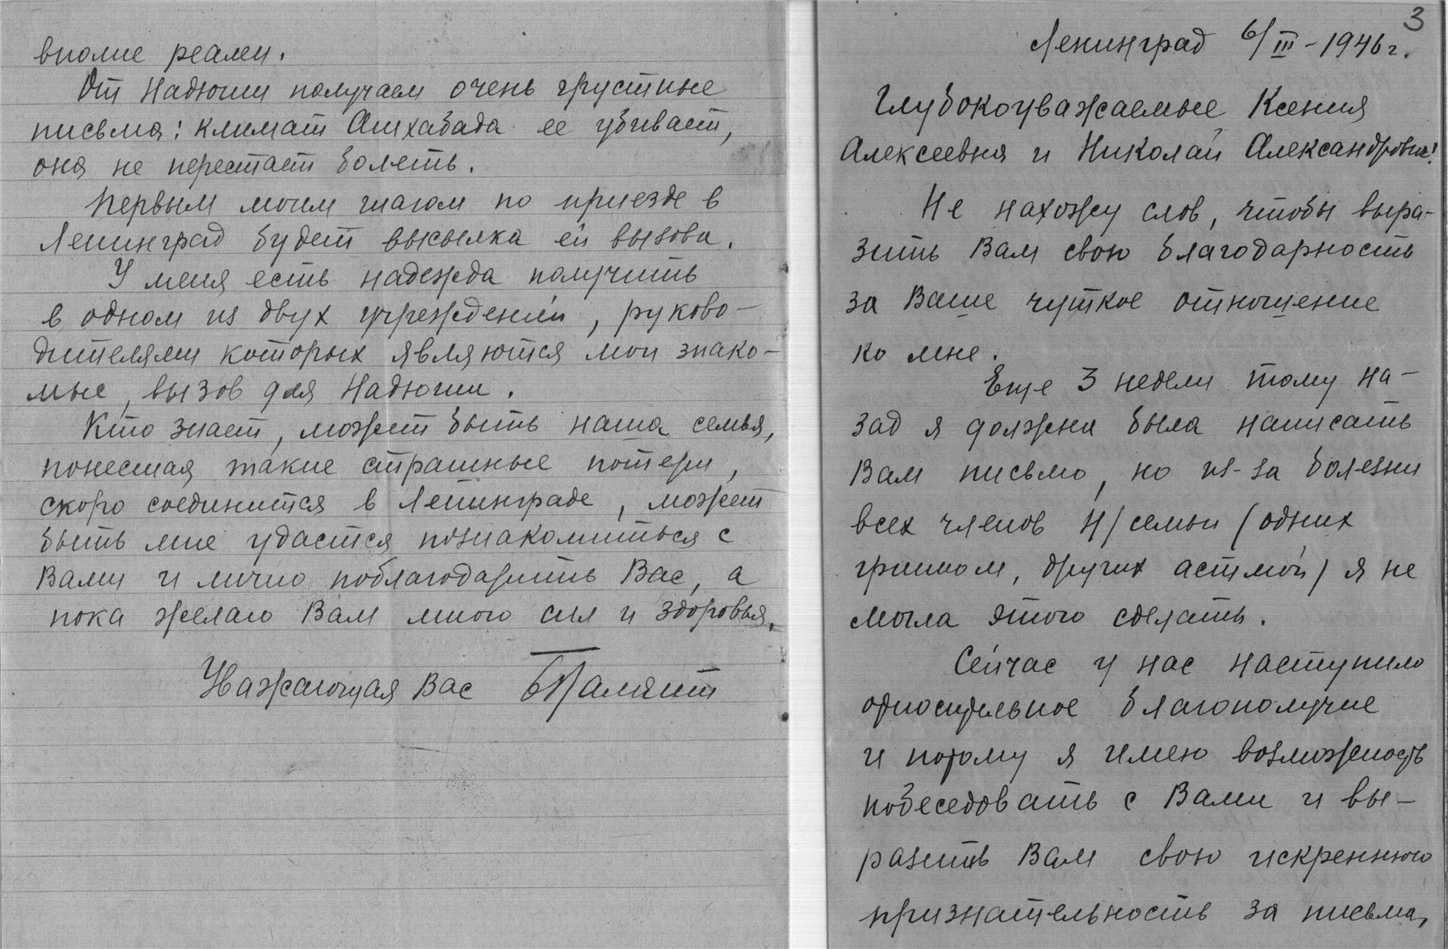 вполне реален.
От Надюши получаем очень грустные
письма: климат Ашхабада ее убивает,
она не перестает болеть.
Первым моим шагом по приезде в
Ленинград будет высылка ей вызова.
У меня есть надежда получить
в одном из двух учреждений, руково-
дителями которых являются мои знако-
мые, вызов для Надюши.
Кто знает, может быть наша семья,
понесшая такие страшные потери,
скоро соединится в Ленинграде, может
быть мне удастся познакомиться с
Вами и лично поблагодарить Вас, а
пока желаю Вам много сил и здоровья.
Уважающая Вас
3
Ленинград 6/III-1946г.
Глубокоуважаемые Ксения
Алексеевна и Николай Александрович!
Не нахожу слов, чтобы выра-
зить Вам свою благодарность
за Ваше чуткое отношение
ко мне.
Еще 3 недели тому на-
зад я должна была написать
Вам письмо, но из-за болезни
всех членов н/семьи (одних
гриппом, других астмой) я не
могла этого сделать.
Сейчас у нас наступило
относительное благополучие
и потому я имею возможность
побеседовать с Вами и вы-
разить Вам свою искреннюю
признательность за письма,